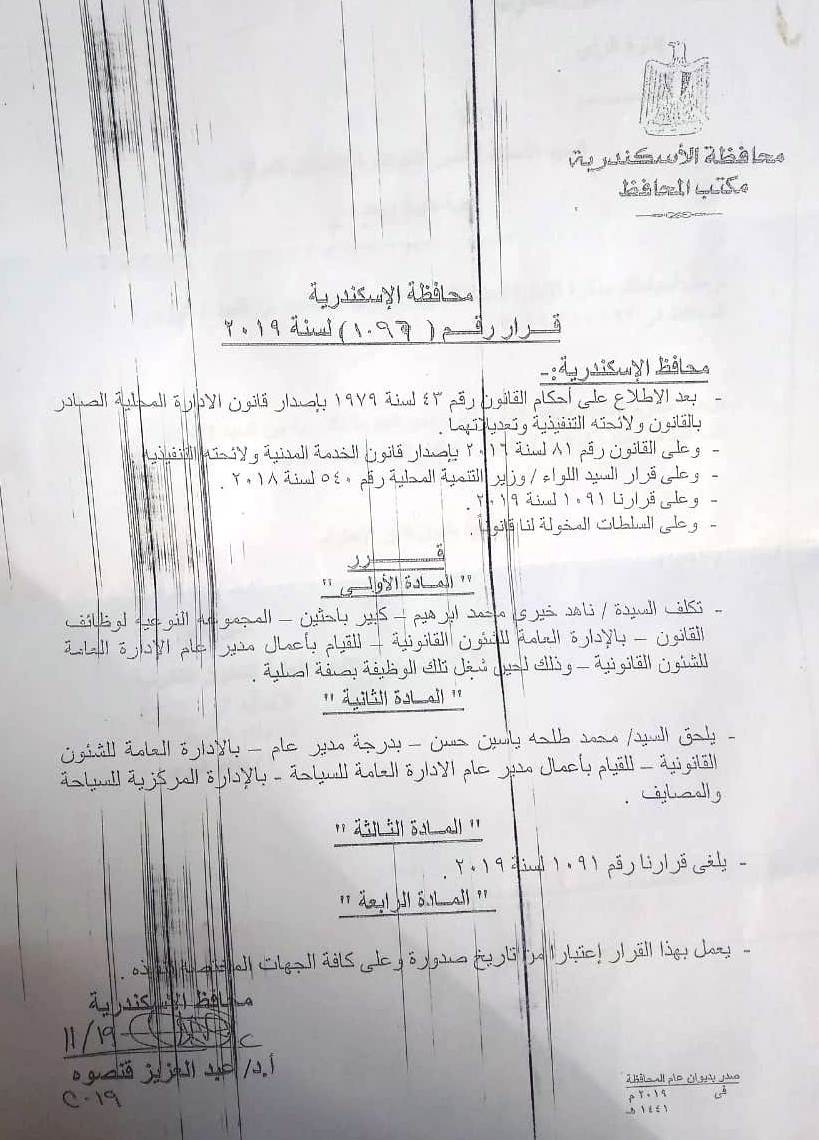 محافظة الأسكندرية
مكتب المحافظ
محافظة الإسكندرية
قــرار رقــم ( ١٠٩٦ ) لسنة ٢٠١٩
محافظ الإسكندرية:-
- بعد الاطلاع على أحكام القانون رقم ٤٣ لسنة ١٩٧٩ بإصدار قانون الادارة المحلية الصادر
بالقانون ولائحته التنفيذية وتعديلاتهما .
- وعلى القانون رقم ٨١ لسنة ٢٠١٦ بإصدار قانون الخدمة المدنية ولائحته التنفيذية .
- وعلى قرار السيد اللواء / وزير التنمية المحلية رقم ٥٤٠ لسنة ٢٠١٨ .
- وعلى قرارنا ١٠٩١ لسنة ٢٠١٩ .
- وعلى السلطات المخولة لنا قانوناً .
قـــــرر
" المـادة الأولـى "
- تكلف السيدة / ناهد خيرى محمد ابرهيم – كبير باحثين – المجموعة النوعية لوظائف
القانون – بالإدارة العامة للشئون القانونية – للقيام بأعمال مدير عام الإدارة العامة
للشئون القانونية – وذلك لحين شغل تلك الوظيفة بصفة اصلية .
" المـادة الثانية "
- يلحق السيد/ محمد طلحه ياسين حسن – بدرجة مدير عام – بالادارة العامة للشئون
القانونية – للقيام بأعمال مدير عام الادارة العامة للسياحة - بالإدارة المركزية للسياحة
والمصايف .
" المـادة الثالثة "
- يلغى قرارنا رقم ١٠٩١ لسنة ٢٠١٩ .
" المادة الرابعة "
- يعمل بهذا القرار إعتبارا من تاريخ صدورة وعلى كافة الجهات المختصة تنفيذه .
محافظ الإسكندرية
١١/١٩
أ.د/ عبد العزيز قنصوه
٢٠١٩
صدر بديوان عام المحافظة
فى ٢٠١٩ م
١٤٤١ هـ